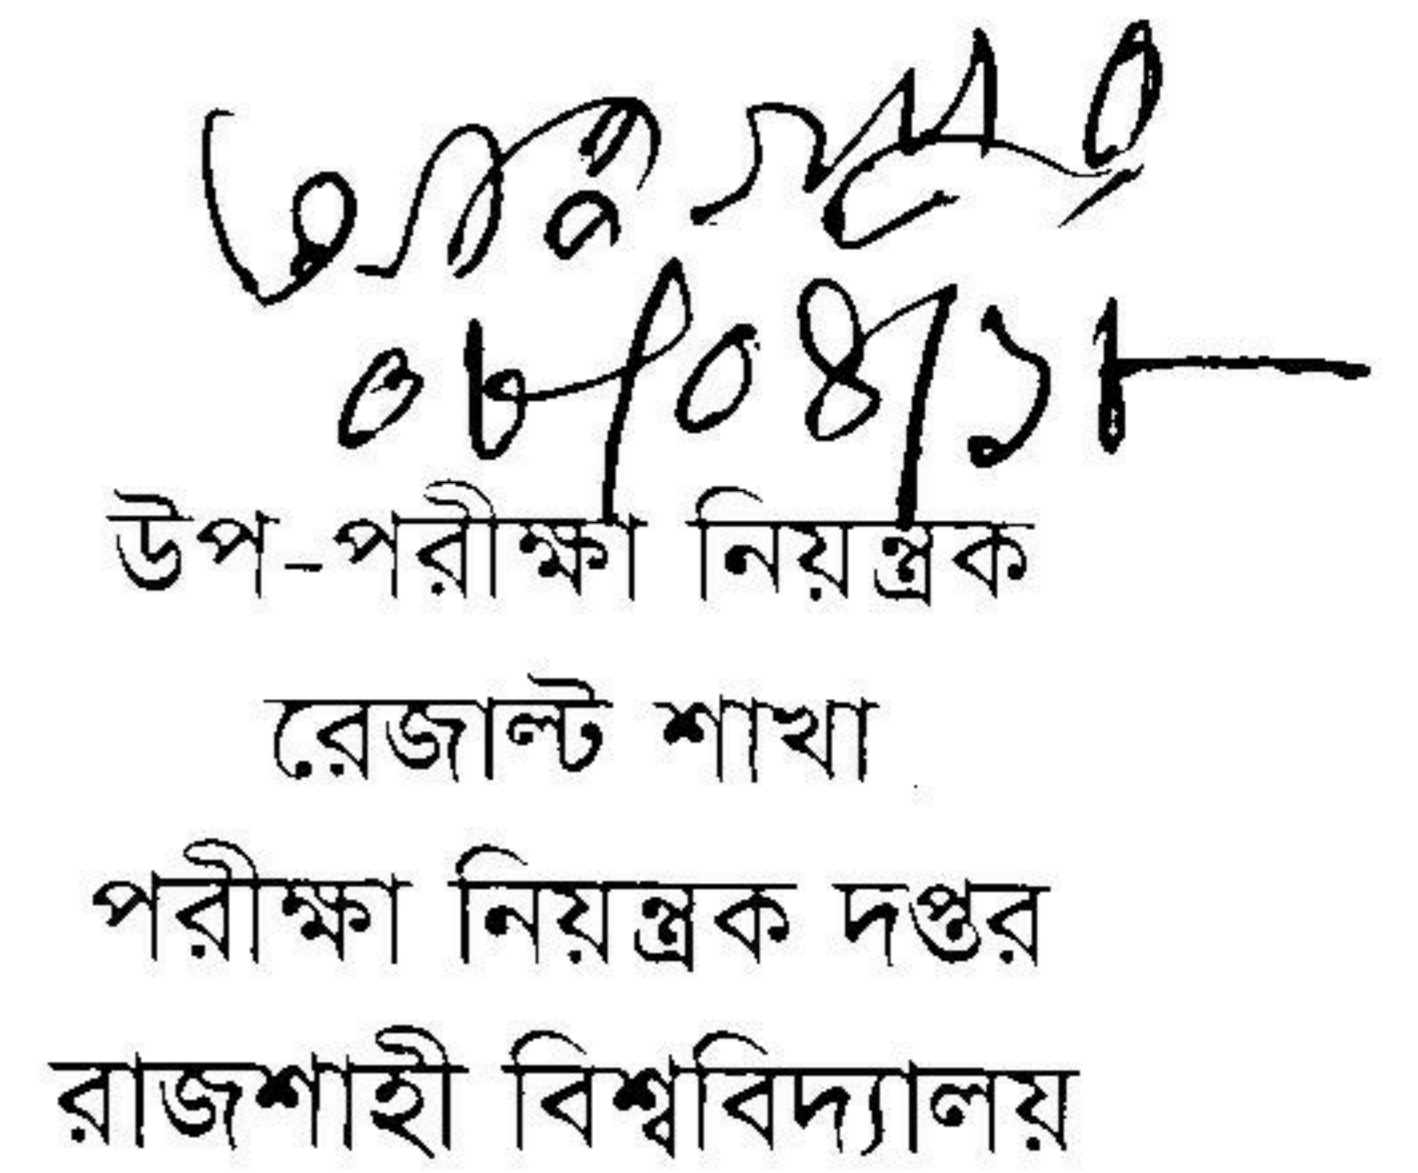 ০৮/০৪/১৮
উপ-পরীক্ষা নিয়ন্ত্রক
রেজাল্ট শাখা
পরীক্ষা নিয়ন্ত্রক দপ্তর
রাজশাহী বিশ্ববিদ্যালয়